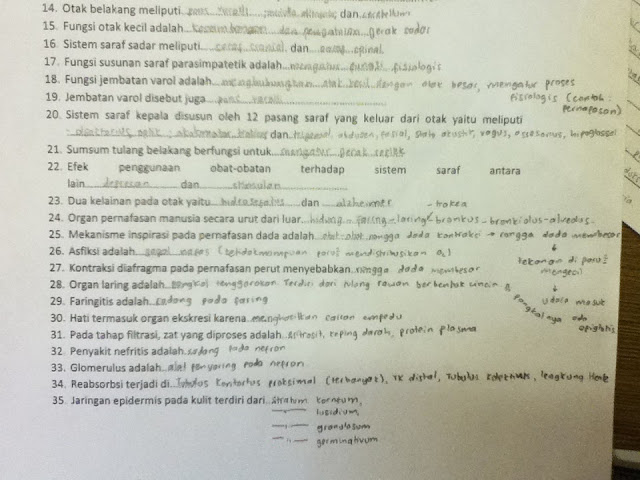 14. Otak belakang meliputi pons varolli, medula oblongata, dan cerebellum
15. Fungsi otak kecil adalah keseimbangan dan pengaturan gerak sadar
16. Sistem saraf sadar meliputi saraf cranial dan saraf spinal
17. Fungsi susunan saraf parasimpatetik adalah mengatur fungsi fisiologis
18. Fungsi jembatan varol adalah menghubungkan otak kecil dengan otak besar, mengatur proses
fisiologis (contoh :
pernapasan)
19. Jembatan varol disebut juga pons varolli
20. Sistem saraf kepala disusun oleh 12 pasang saraf yang keluar dari otak yaitu meliputi
olfactorius, optik, okulomotor, troklear dan trigeminal, abdusen, fasial, vagus, assesorius, hipoglossal
21. Sumsum tulang belakang berfungsi untuk mengatur gerak refleks
22. Efek penggunaan obat-obatan terhadap sistem saraf antara
lain depresan dan stimulan
23. Dua kelainan pada otak yaitu hidrosefalus dan alzheimer
- trakea
24. Organ pernafasan manusia secara urut dari luar hidung - faring - laring - bronkus - bronkiolus - alveolus
25. Mekanisme inspirasi pada pernafasan dada adalah otot-otot rongga dada kontraksi → rongga dada membesar
↓
tekanan di paru²
mengecil
↓
udara masuk
26. Asfiksi adalah gagal napas (ketidakmampuan paru² mendistribusikan O₂)
27. Kontraksi diafragma pada pernafasan perut menyebabkan rongga dada membesar
28. Organ laring adalah pangkal tenggorokan Terdiri dari tulang rawan berbentuk cincin &
pangkalnya ada
epiglotis
29. Faringitis adalah radang pada faring
30. Hati termasuk organ ekskresi karena menghasilkan cairan empedu
31. Pada tahap filtrasi, zat yang diproses adalah eritrosit, keping darah, protein plasma
32. Penyakit nefritis adalah radang pada nefron
33. Glomerulus adalah alat penyaring pada nefron
34. Reabsorbsi terjadi di Tubulus Kontortus proksimal (terbanyak), TK distal, Tubulus kolektivus, lengkung Henle
35. Jaringan epidermis pada kulit terdiri dari stratum korneum,
—"— lusidium
—"— granulosum
—"— germinativum